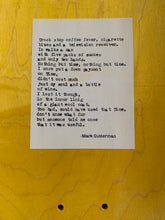 Truck stop coffee fever, cigarette
blues and a television preacher.
Is talk'd a man
with five packs of smokes
and only two hands.
Nothing but time, nothing but time.
I once put a down payment
on Time,
didn't cost much
Just my soul and a bottle
of wine.
I lost it though,
in the inner lining
of a giant wool coat.
Too bad, could have used that Time.
don't know what for
but someone told me once
that it was useful.
-Adam Gunderman